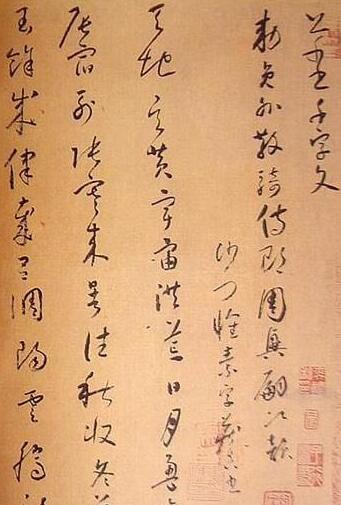 千字文
勅員外散騎侍郎周興嗣次韻
沙門懷素字藏真書
天地玄黃宇宙洪荒日月盈
辰宿列張寒來暑往秋收冬藏
閏餘成歲律呂調陽雲騰